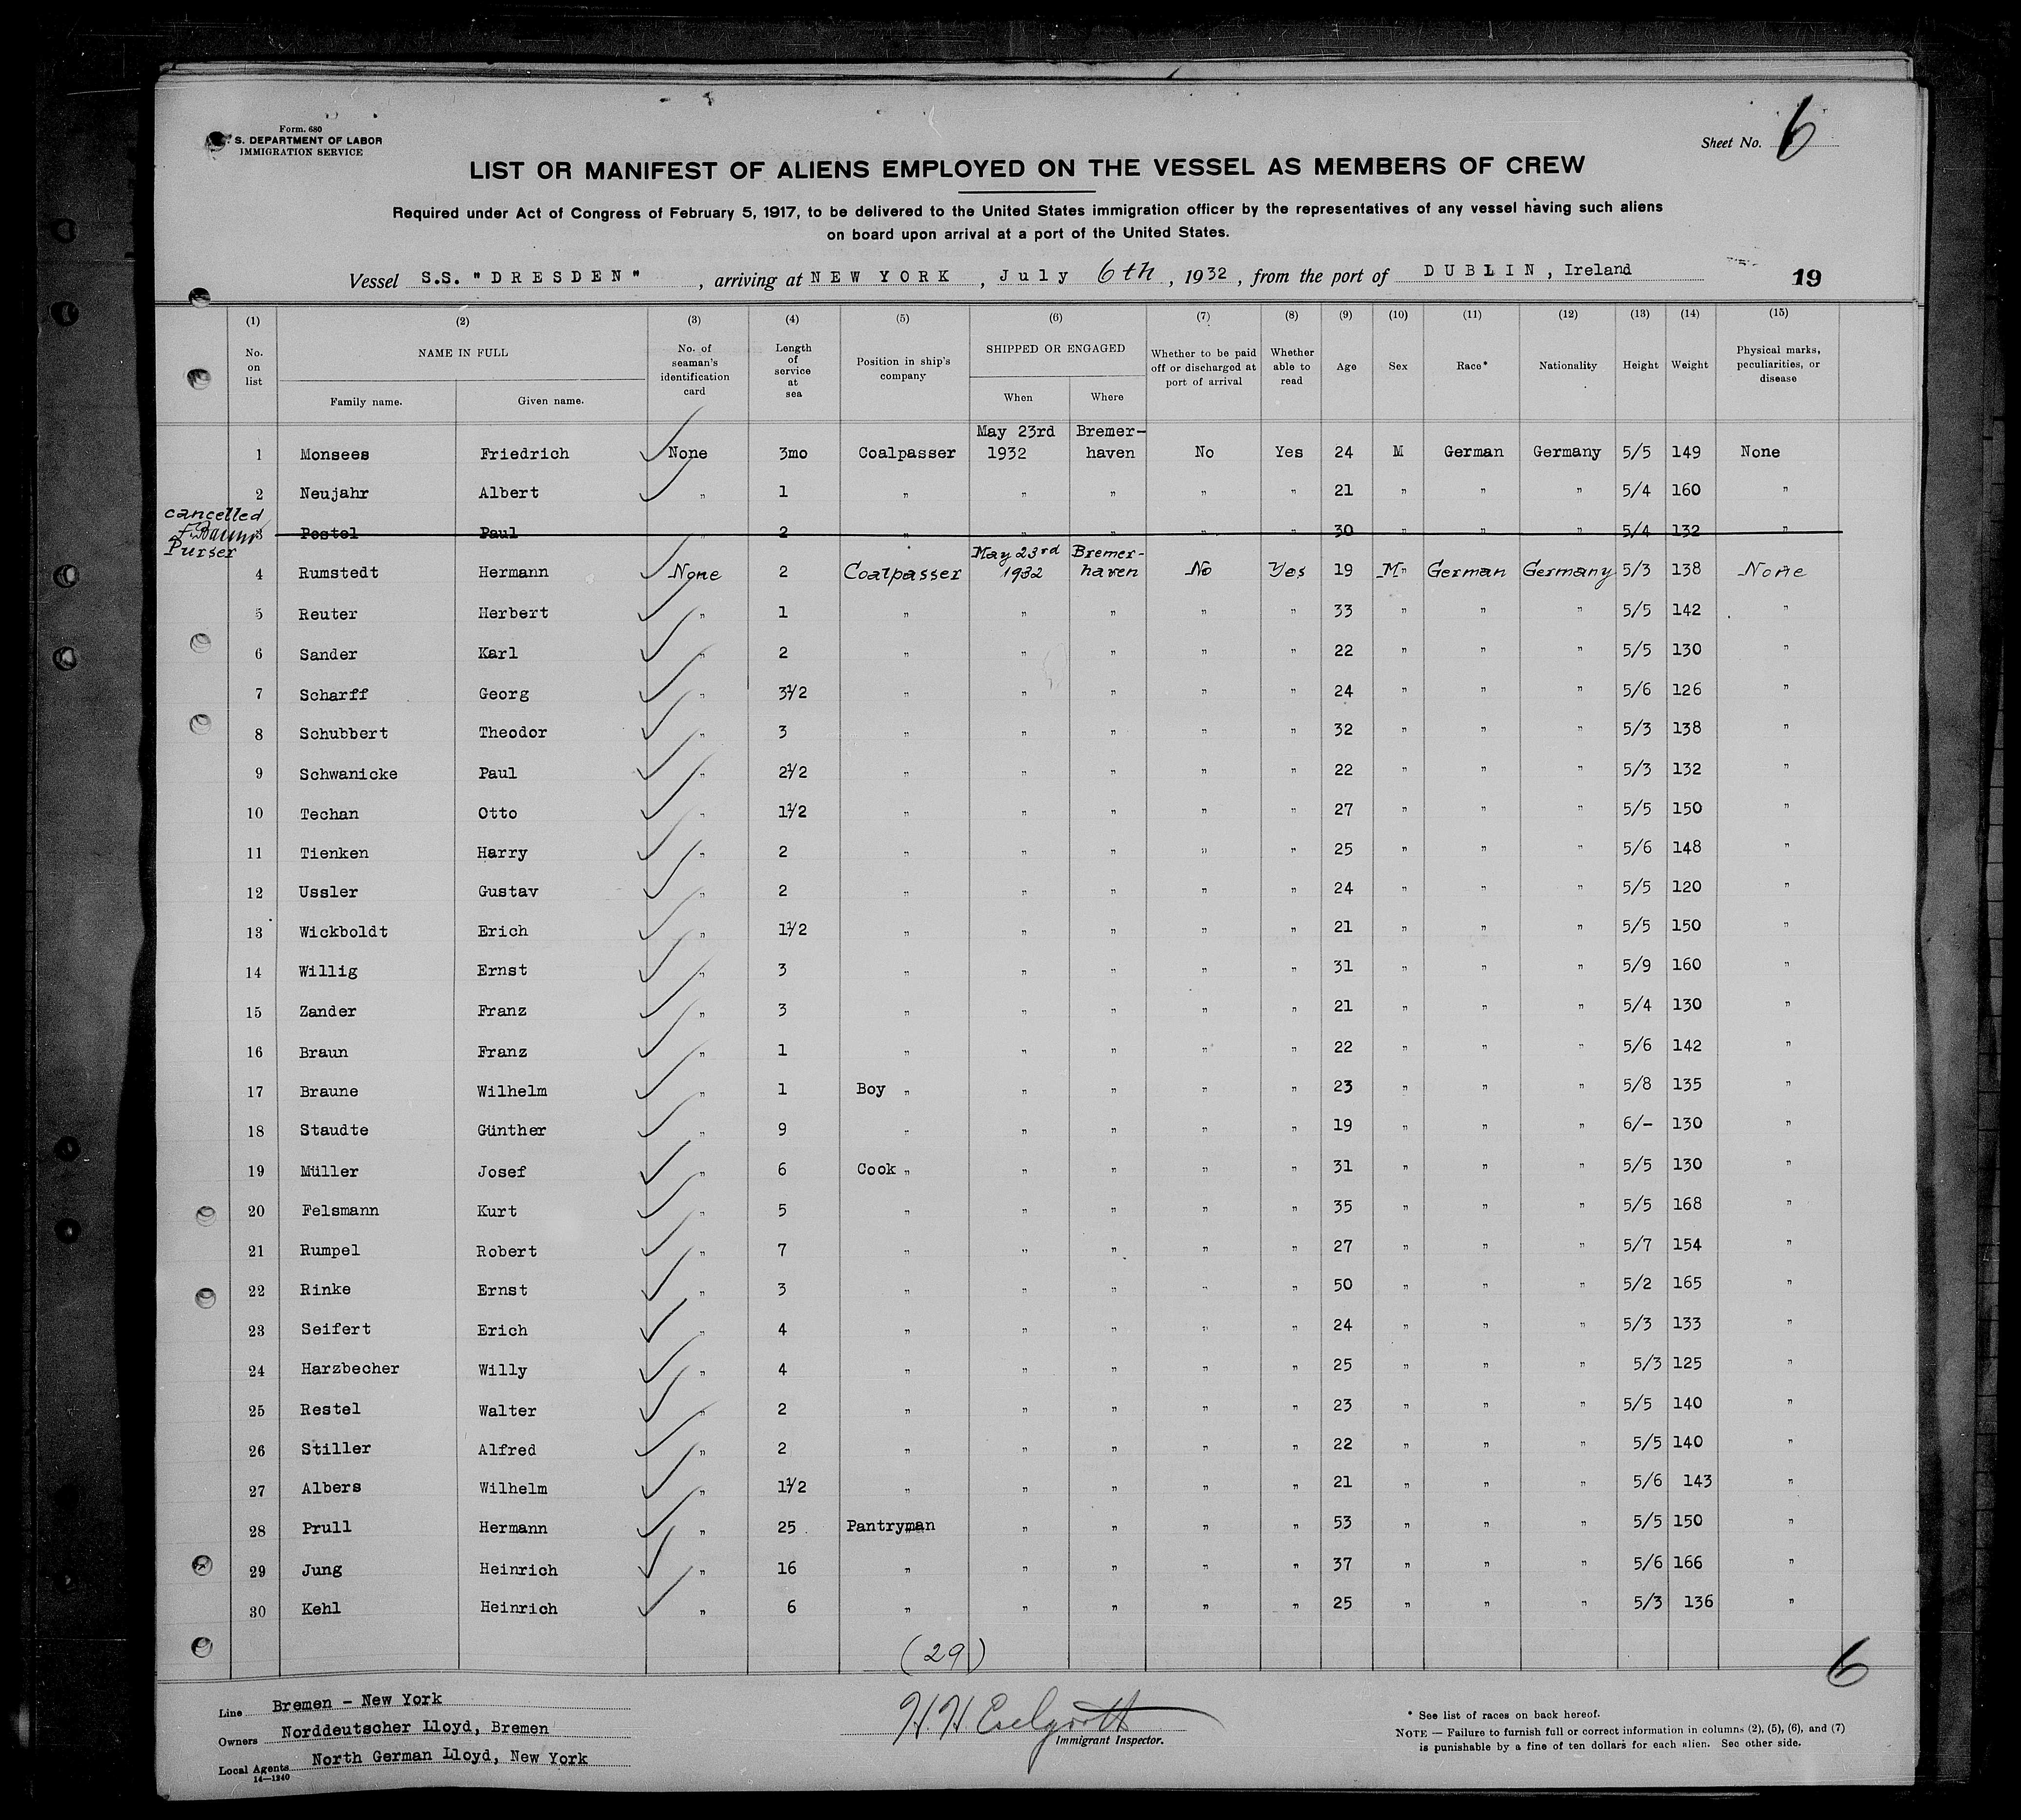 Form. 680
S. DEPARTMENT OF LABOR
IMMIGRATION SERVICE
Sheet No. 6
LIST OR MANIFEST OF ALIENS EMPLOYED ON THE VESSEL AS MEMBERS OF CREW
Required under Act of Congress of February 5, 1917, to be delivered to the United States immigration officer by the representatives of any vessel having such aliens
on board upon arrival at a port of the United States.
Vessel S.S. "DRESDEN" , arriving at NEW YORK , July 6th , 1932 , from the port of DUBLIN, Ireland 19
(1) (2) (3) (4) (5) (6) (7) (8) (9) (10) (11) (12) (13) (14) (15)
No. on list NAME IN FULL Family name. Given name. No. of seaman's identification card Length of service at sea Position in ship's company SHIPPED OR ENGAGED When Where Whether to be paid off or discharged at port of arrival Whether able to read Age Sex Race* Nationality Height Weight Physical marks, peculiarities, or disease
1 Monsees Friedrich None 3mo Coalpasser May 23rd 1932 Bremer-haven No Yes 24 M German Germany 5/5 149 None
2 Neujahr Albert " 1 " " " " " 21 " " " 5/4 160 "
cancelled
Purser
3 Postel Paul 2 " " " " " 30 " " " 5/4 132 "
4 Rumstedt Hermann None 2 Coalpasser May 23rd 1932 Bremer-haven No Yes 19 M" German Germany 5/3 138 None
5 Reuter Herbert " 1 " " " " " 33 " " " 5/5 142 "
6 Sander Karl " 2 " " " " " 22 " " " 5/5 130 "
7 Scharff Georg " 3½ " " " " " 24 " " " 5/6 126 "
8 Schubbert Theodor " 3 " " " " " 32 " " " 5/3 138 "
9 Schwanicke Paul " 2½ " " " " " 22 " " " 5/3 132 "
10 Techan Otto " 1½ " " " " " 27 " " " 5/5 150 "
11 Tienken Harry " 2 " " " " " 25 " " " 5/6 148 "
12 Ussler Gustav " 2 " " " " " 24 " " " 5/5 120 "
13 Wickboldt Erich " 1½ " " " " " 21 " " " 5/5 150 "
14 Willig Ernst " 3 " " " " " 31 " " " 5/9 160 "
15 Zander Franz " 3 " " " " " 21 " " " 5/4 130 "
16 Braun Franz " 1 " " " " " 22 " " " 5/6 142 "
17 Braune Wilhelm " 1 Boy " " " " " 23 " " " 5/8 135 "
18 Staudte Günther " 9 " " " " " 19 " " " 6/- 130 "
19 Müller Josef " 6 Cook " " " " " 31 " " " 5/5 130 "
20 Felsmann Kurt " 5 " " " " " 35 " " " 5/5 168 "
21 Rumpel Robert " 7 " " " " " 27 " " " 5/7 154 "
22 Rinke Ernst " 3 " " " " " 50 " " " 5/2 165 "
23 Seifert Erich " 4 " " " " " 24 " " " 5/3 133 "
24 Harzbecher Willy " 4 " " " " " 25 " " " 5/3 125 "
25 Restel Walter " 2 " " " " " 23 " " " 5/5 140 "
26 Stiller Alfred " 2 " " " " " 22 " " " 5/5 140 "
27 Albers Wilhelm " 1½ " " " " " 21 " " " 5/6 143 "
28 Prull Hermann " 25 Pantryman " " " " 53 " " " 5/5 150 "
29 Jung Heinrich " 16 " " " " " 37 " " " 5/6 166 "
30 Kehl Heinrich " 6 " " " " " 25 " " " 5/3 136 "
(29)
6
Line Bremen - New York
Owners Norddeutscher Lloyd, Bremen
Local Agents North German Lloyd, New York
14—1240
Immigrant Inspector.
* See list of races on back hereof.
NOTE — Failure to furnish full or correct information in columns (2), (5), (6), and (7)
is punishable by a fine of ten dollars for each alien. See other side.